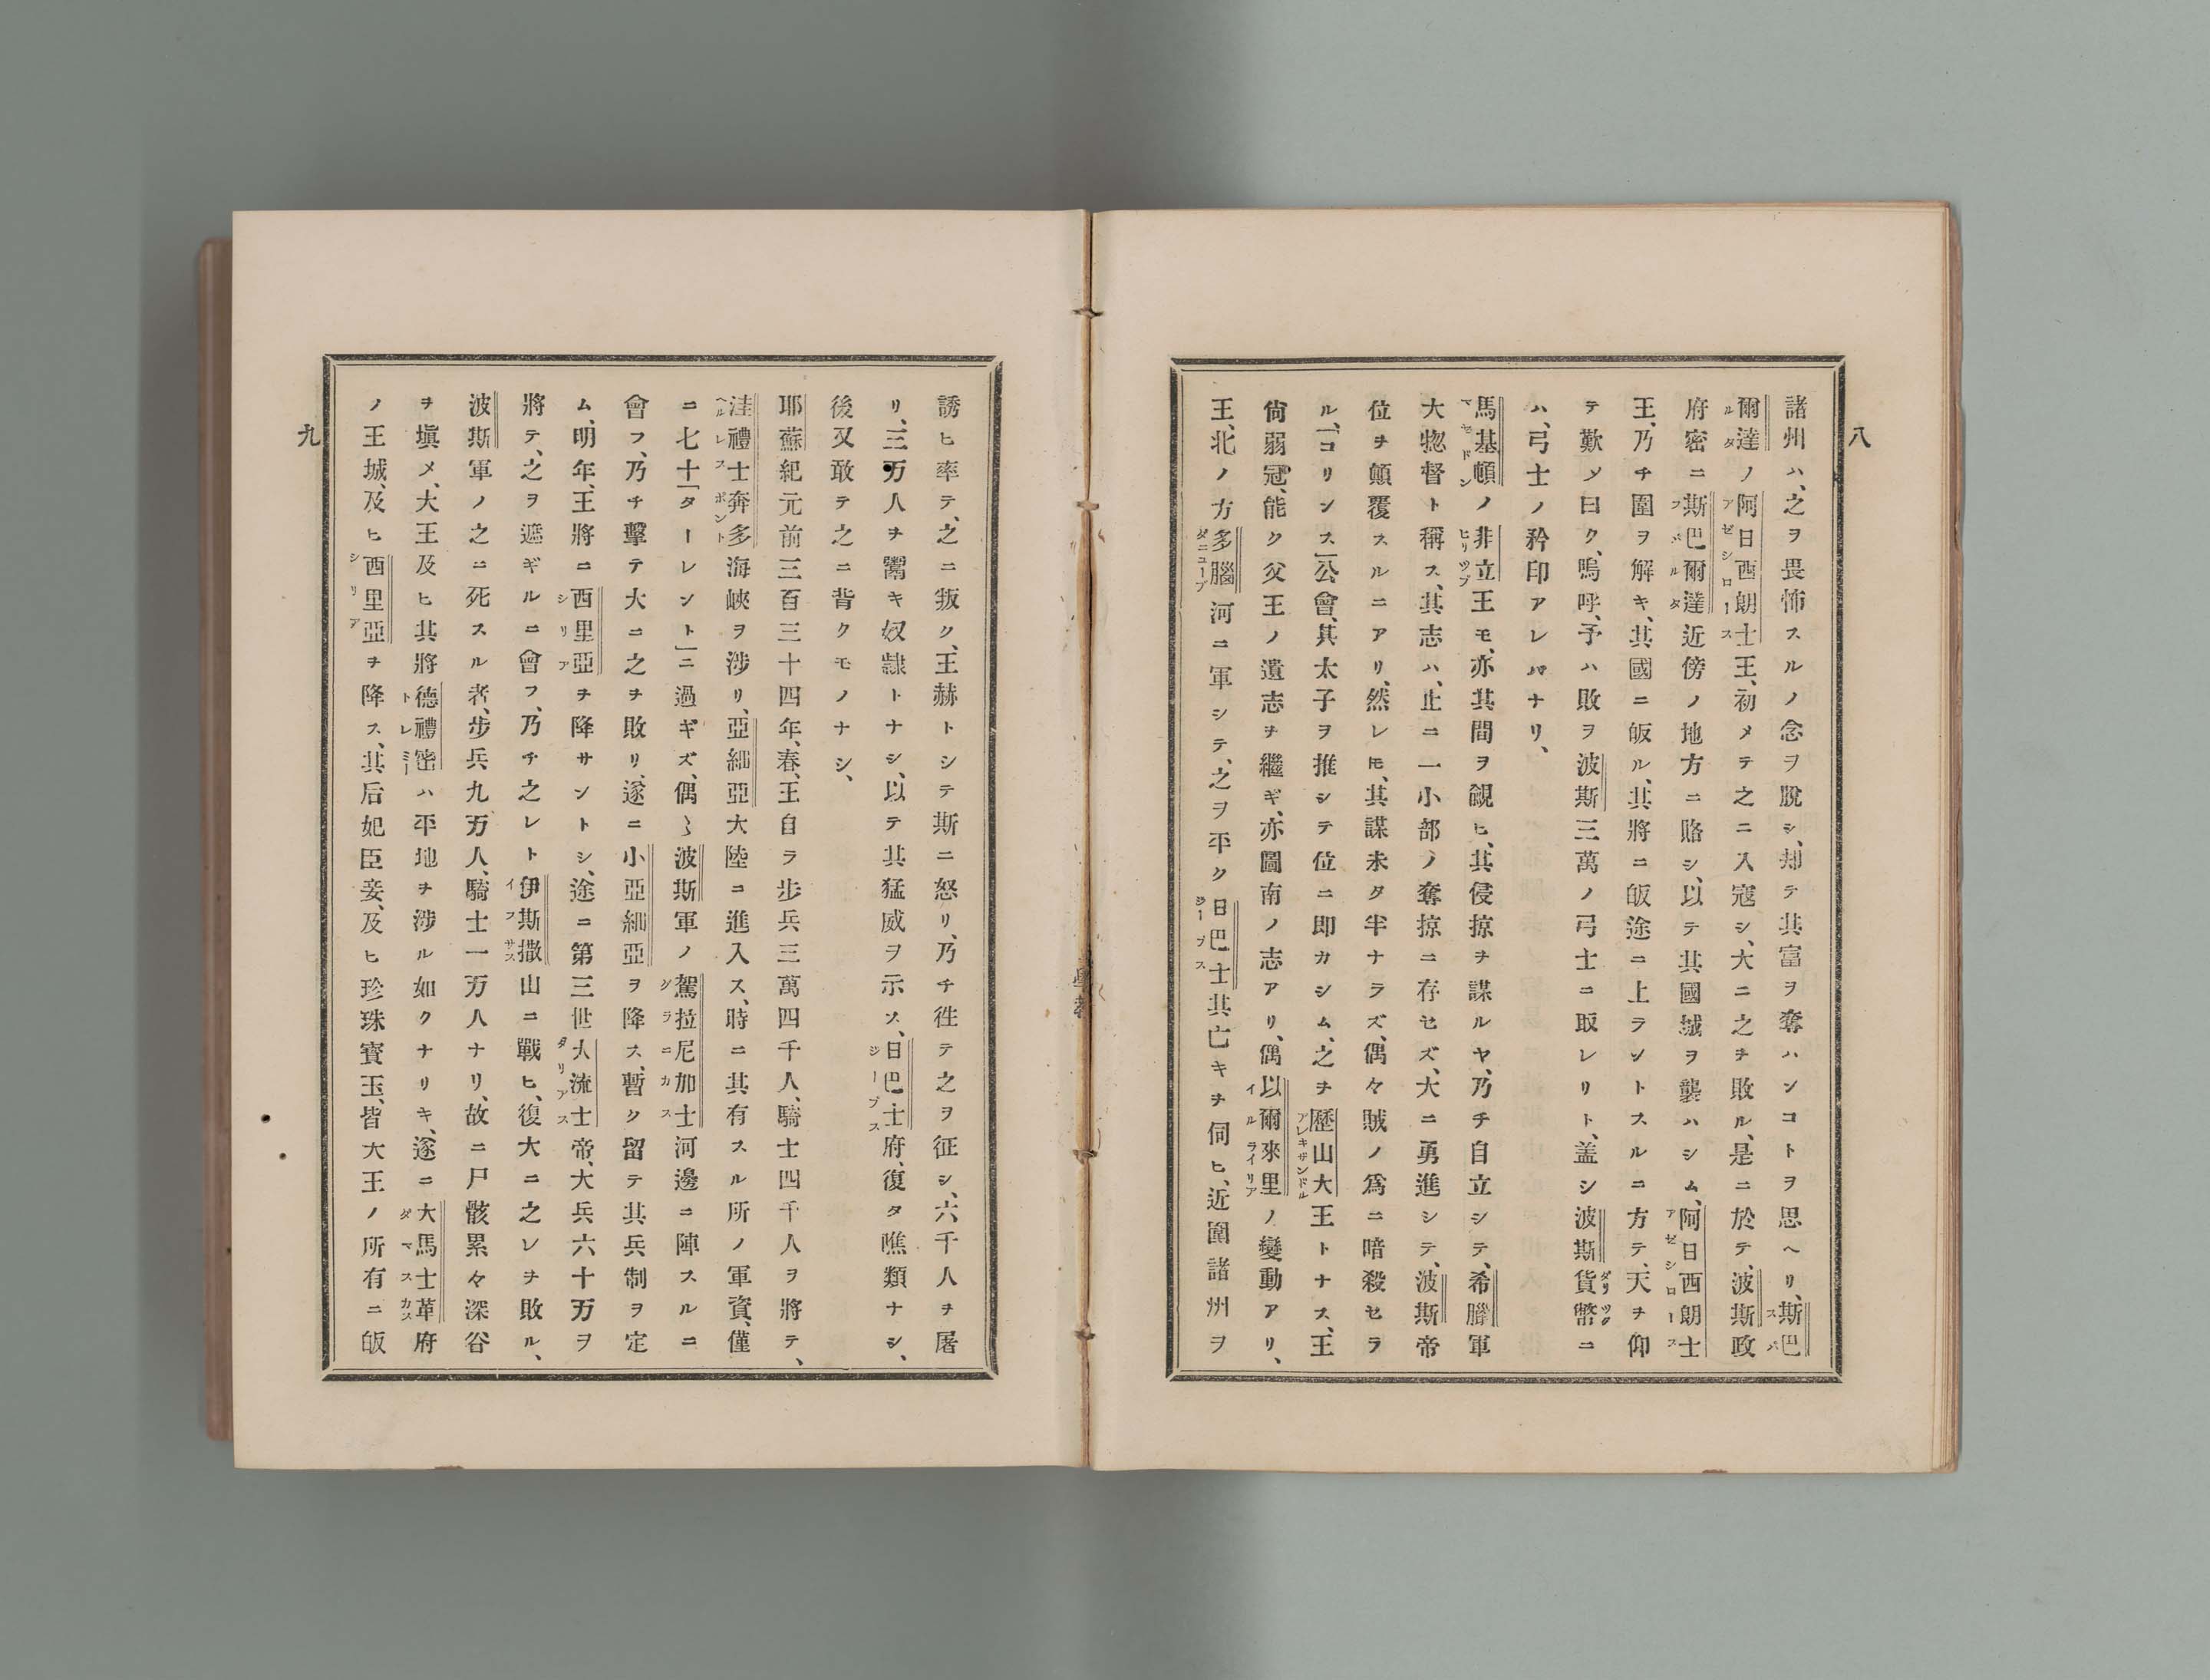 八
諸州ハ、之ヲ畏怖スルノ念ヲ脫シ、却テ其富ヲ奪ハンコトヲ思ヘリ、斯巴
爾達ノ阿日西朗士王、初メテ之ニ入寇シ、大ニ之ヲ敗ル、是ニ於テ、波斯政
府密ニ斯巴爾達近傍ノ地方ニ賂シ、以テ其國城ヲ襲ハシム、阿日西朗士
王、乃チ圍ヲ解キ、其國ニ皈ル、其將ニ皈途ニ上ラントスルニ方テ、天ヲ仰
テ歎〆曰ク、嗚呼、予ハ敗ヲ波斯三萬ノ弓士ニ取レリト、盖シ波斯貨幣ニ
ハ、弓士ノ矜印アレバナリ、
馬基頓ノ非立王モ、亦其間ヲ覷ヒ、其侵掠ヲ謀ルヤ、乃チ自立シテ、希臘軍
大惣督ト稱ス、其志ハ、止ニ一小部ノ奪掠ニ存セズ、大ニ勇進シテ、波斯帝
位ヲ顛覆スルニアリ、然レ𪜈、其謀未タ半ナラズ、偶々賊ノ爲ニ暗殺セラ
ル、「コリンス」公會、其太子ヲ推シテ位ニ卽カシム、之ヲ歷山大王トナス、王
尙弱冠、能ク父王ノ遺志ヲ繼ギ、亦圖南ノ志アリ、偶以爾來里ノ變動アリ、
王、北ノ方多腦河ニ軍シテ、之ヲ平ク日巴士其亡キヲ伺ヒ、近圍諸州ヲ
誘ヒ率テ、之ニ叛ク、王赫トシテ斯ニ怒リ、乃チ徃テ之ヲ征シ、六千人ヲ屠
リ、三万人ヲ鬻キ奴隷トナシ、以テ其猛威ヲ示ス、日巴士府、復タ噍類ナシ、
後又敢テ之ニ背クモノナシ、
耶蘇紀元前三百三十四年、春、王自ラ步兵三萬四千人、騎士四千人ヲ將テ、
洼禮士奔多海峽ヲ涉リ、亞細亞大陸ニ進入ス、時ニ其有スル所ノ軍資、僅
ニ七十「ターレント」ニ過ギズ、偶〻波斯軍ノ駕拉尼加士河邊ニ陣スルニ
會フ、乃チ擊テ大ニ之ヲ敗リ、遂ニ小亞細亞ヲ降ス、暫ク留テ其兵制ヲ定
ム、明年、王將ニ西里亞ヲ降サントシ、途ニ第三世大流士帝、大兵六十万ヲ
將テ、之ヲ遮ギルニ會フ、乃チ之レト伊斯撒山ニ戰ヒ、復大ニ之レヲ敗ル、
波斯軍ノ之ニ死スル者、步兵九万人、騎士一万人ナリ、故ニ尸骸累々深谷
ヲ塡メ、大王及ヒ其將德禮密ハ平地ヲ涉ル如クナリキ、遂ニ大馬士革府
ノ王城、及ヒ西里亞ヲ降ス、其后妃臣妾、及ヒ珍珠寳玉、皆大王ノ所有ニ皈
九